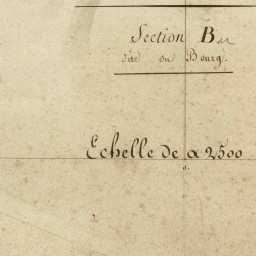 Section B
du Bourg.
Echelle de a 2500